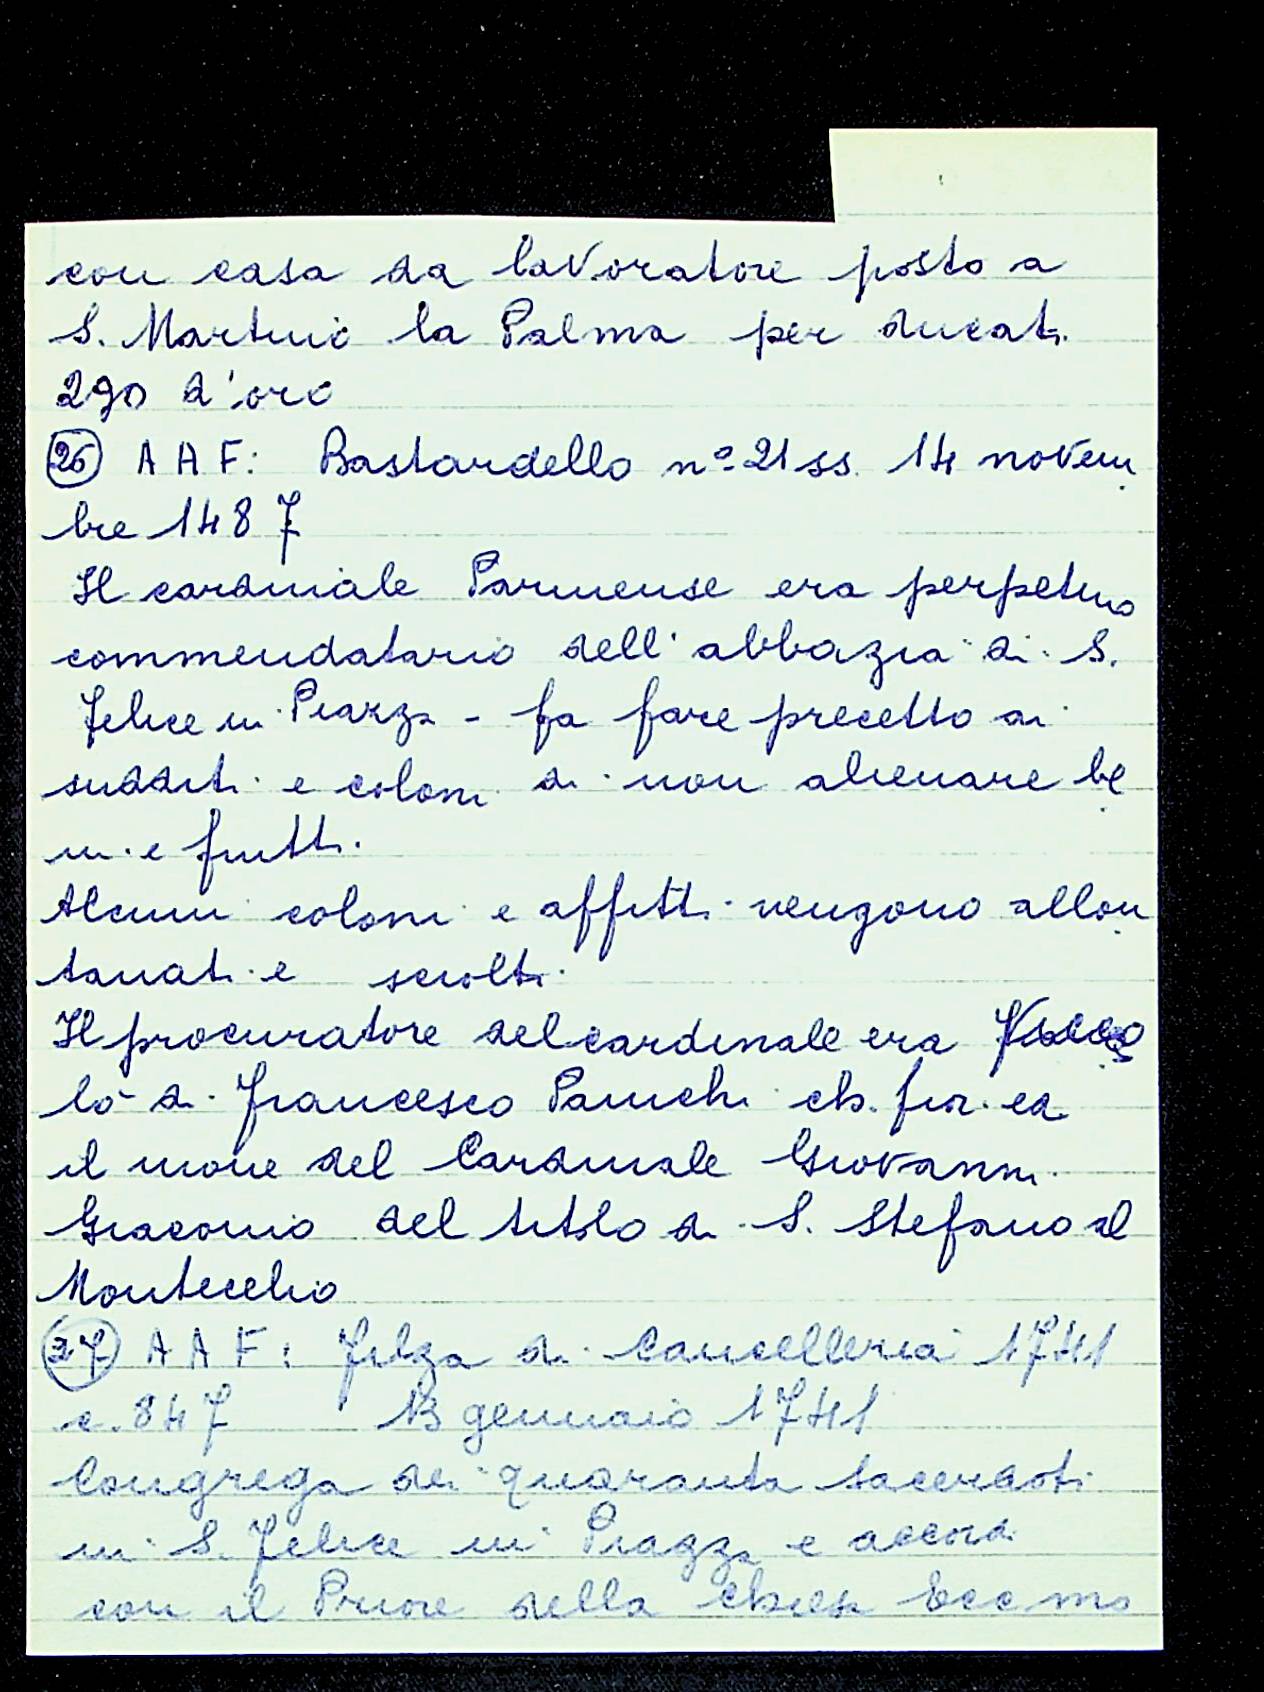 con casa da lavoratore posto a
S. Martino la Palma per ducati
290 d'oro
26 AAF: Bastardello nº 21 ss. 14 novem
bre 1487
Il cardinale Parmense era perpetuo
commendatario dell'abbazia di S.
Felice in Piazza - fa fare precetto ai
sudditi e coloni di non alienare be
ni e frutti.
Alcuni coloni e affitti vengono allon
tanati e sciolti
Il procuratore del cardinale era
lò di Francesco Panichi ch. fior. ed
il nome del Cardinale Giovanni
Giacomo del titolo di S. Stefano al
Montecelio
27 AAF: Filza di Cancelleria 1741
c. 847 13 gennaio 1741
Congrega dei quaranta sacerdoti
in S. Felice in Piazza e accordi
con il Priore della chiesa